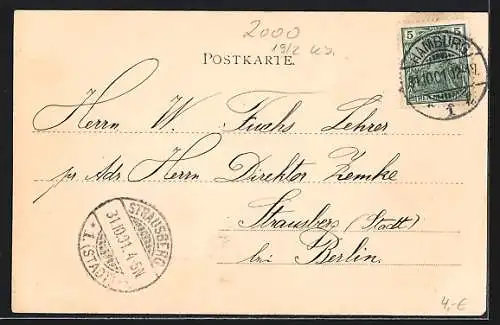 2000
19/2
POSTKARTE.
5
HAMBURG
31.10.01
1
Herrn W. Fuchs Lehrer
per Adr Herrn Direktor Zemke
Strausberg (Stadt)
bei Berlin.
STRAUSBERG
31.10.01. 4-5N
* 1. (STADT)
4,-€